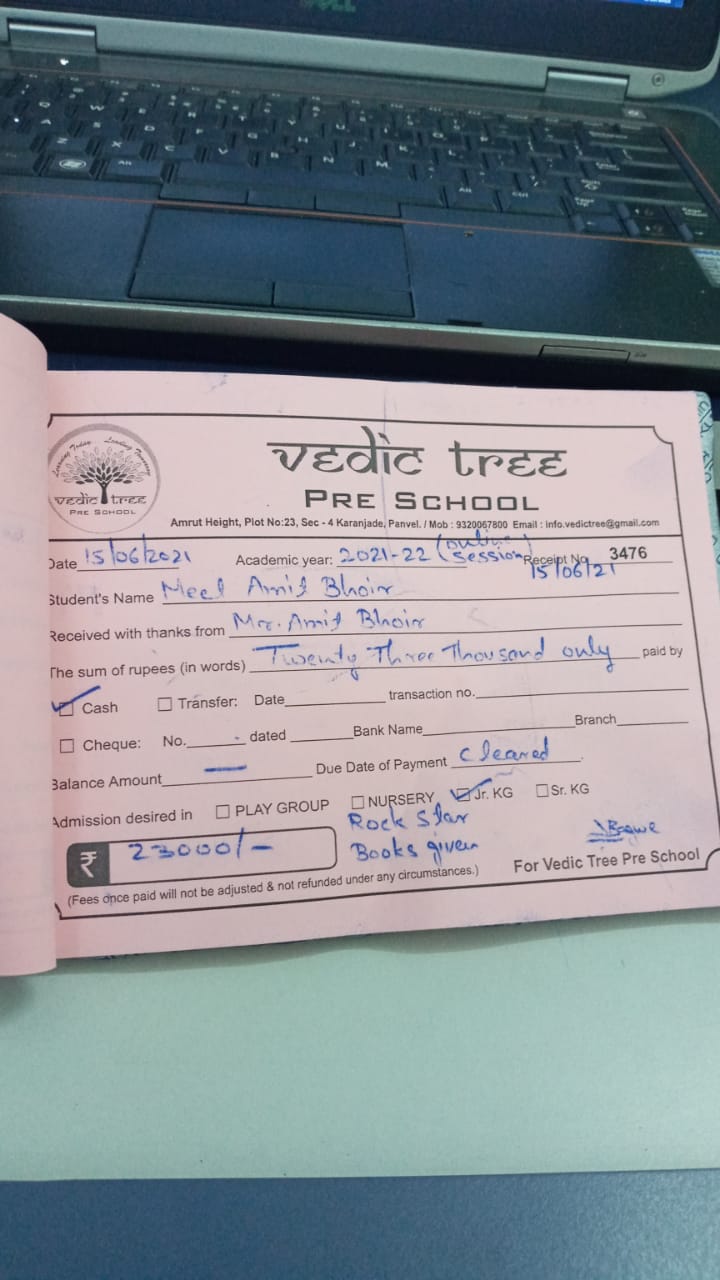 DELL
Learning Today Leading Tomorrow
vedic tree
PRE SCHOOL
vedic tree
PRE SCHOOL
Amrut Height, Plot No:23, Sec - 4 Karanjade, Panvel. / Mob : 9320067800 Email : info.vedictree@gmail.com
Date 15/06/2021 Academic year: 2021-22 (online session Receipt No 3476
15/06/21
Student's Name Meet Amit Bhoir
Received with thanks from Mr. Amit Bhoir
The sum of rupees (in words) Twenty Three Thousand only paid by
Cash Transfer: Date transaction no.
Cheque: No. dated Bank Name Branch
Balance Amount — Due Date of Payment cleared
Admission desired in PLAY GROUP NURSERY Jr. KG Sr. KG
Rock Star
₹ 23000/- Books given
For Vedic Tree Pre School
(Fees once paid will not be adjusted & not refunded under any circumstances.)